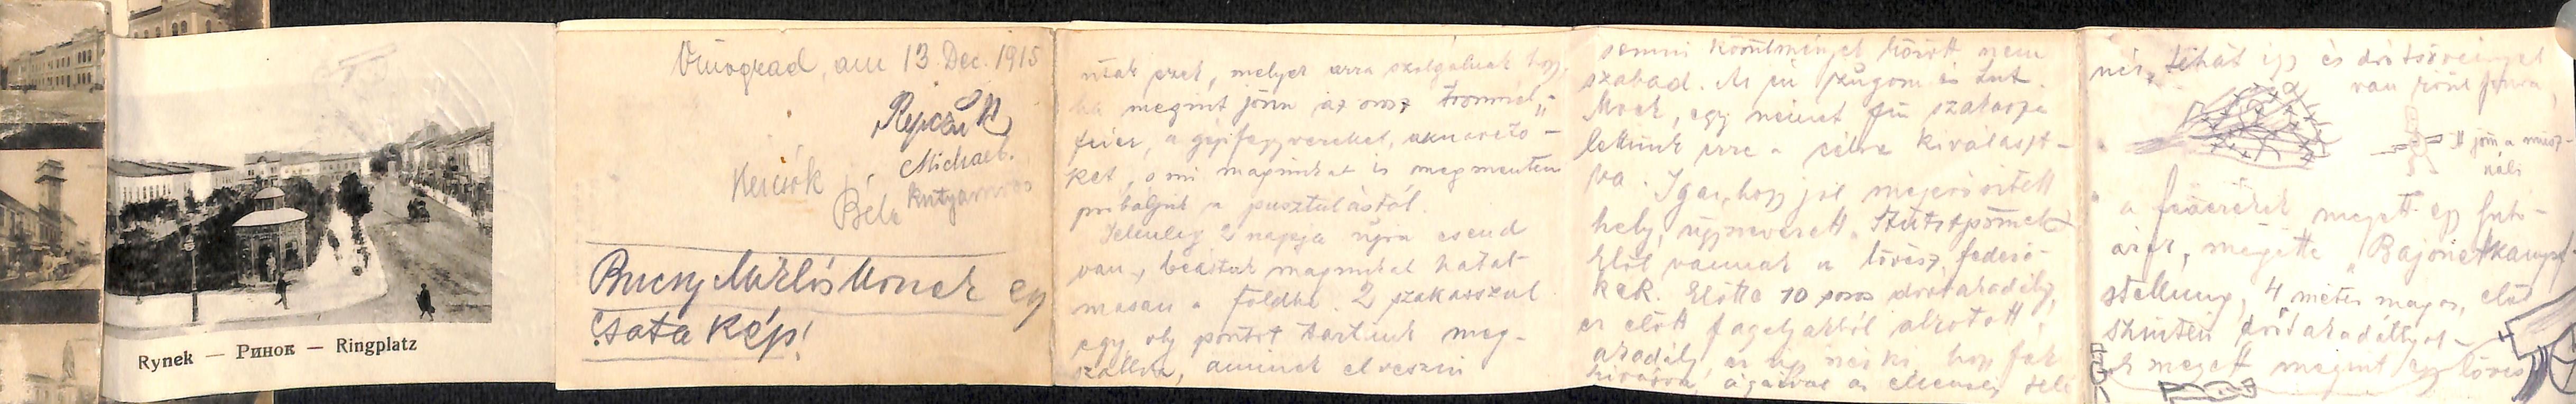 Rynek — Ринок — Ringplatz
Vinograd, am 13. Dec. 1915
Michael.
Béla
Bucsy Miklósnak egy
Csata kép!
ezek, melyek arra szolgálnak hogy
ha megint jönn az orosz trommel-
feuer, a gépfegyvereket,
ket, s mi magunkat is megmenteni
próbáljuk a pusztulástól.
Jelenleg 2 napja újra csend
van, beástuk magunkat hatal-
masan a földbe. 2 szakasszal
egy oly pontot tartunk meg-
szállva, aminek elveszni
semmi körülmények között nem
szabad. Az én zugom és Lut.
Mock, egy német fiú szakasza
lettünk erre a célra kiválaszt-
va. Igaz, hogy jól megerősített
hely, úgynevezett „Stützpunkt
Elöl vannak a lövész fedező-
kek. Előtte 10 soros drótakadály,
ez előtt fagallyakból alkotott
akadály, ez úgy néz ki, hogy fák
kivágva, ágaival az ellenség felé
néz, tehát így és drótsövénnyel
van
jön a
a fedezékek megett egy futó-
árok, mögötte „Bajonetkampf-
stellung, 4 méter magas, elől
szintén drótakadállyal
megett megint egy lövész